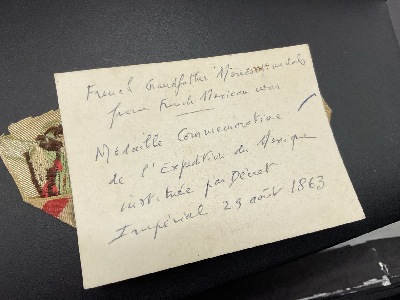 French Grandfather medals
from French Mexican war
Médaille Commemorative
de l'Expedition du Mexique
instituée par Décret
Impérial 29 août 1863